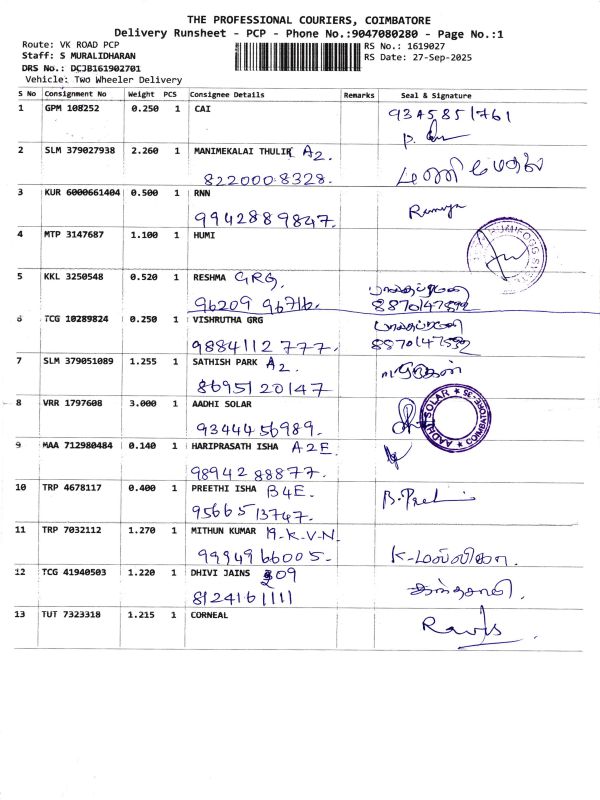 THE PROFESSIONAL COURIERS, COIMBATORE
Delivery Runsheet - PCP - Phone No.:9047080280 - Page No.:1
Route: VK ROAD PCP
RS No.: 1619027
Staff: S MURALIDHARAN
RS Date: 27-Sep-2025
DRS No.: DCJB161902701
Vehicle: Two Wheeler Delivery
S No Consignment No Weight PCS Consignee Details Remarks Seal & Signature
1 GPM 108252 0.250 1 CAI 9345851761
2 SLM 379027938 2.260 1 MANIMEKALAI THULIR A2.
8220008328.
3 KUR 6000661404 0.500 1 RNN Ramya
9942889847.
4 MTP 3147687 1.100 1 HUMI
5 KKL 3250548 0.520 1 RESHMA GRG.
96209 96716. 8870147592
6 TCG 10289824 0.250 1 VISHRUTHA GRG
9884112 777. 8870147592
7 SLM 379051089 1.255 1 SATHISH PARK A2.
8695120147
8 VRR 1797608 3.000 1 AADHI SOLAR AADHI SOLAR ★ COIMBATORE-35 ★
9344456989.
9 MAA 712980484 0.140 1 HARIPRASATH ISHA A2E.
9894288877.
10 TRP 4678117 0.400 1 PREETHI ISHA B4E.
9566513747.
11 TRP 7032112 1.270 1 MITHUN KUMAR M.K.V.N. K-மல்லிகை.
9994966005.
12 TCG 41940503 1.220 1 DHIVI JAINS 309 கந்தசாமி.
8124161111
13 TUT 7323318 1.215 1 CORNEAL